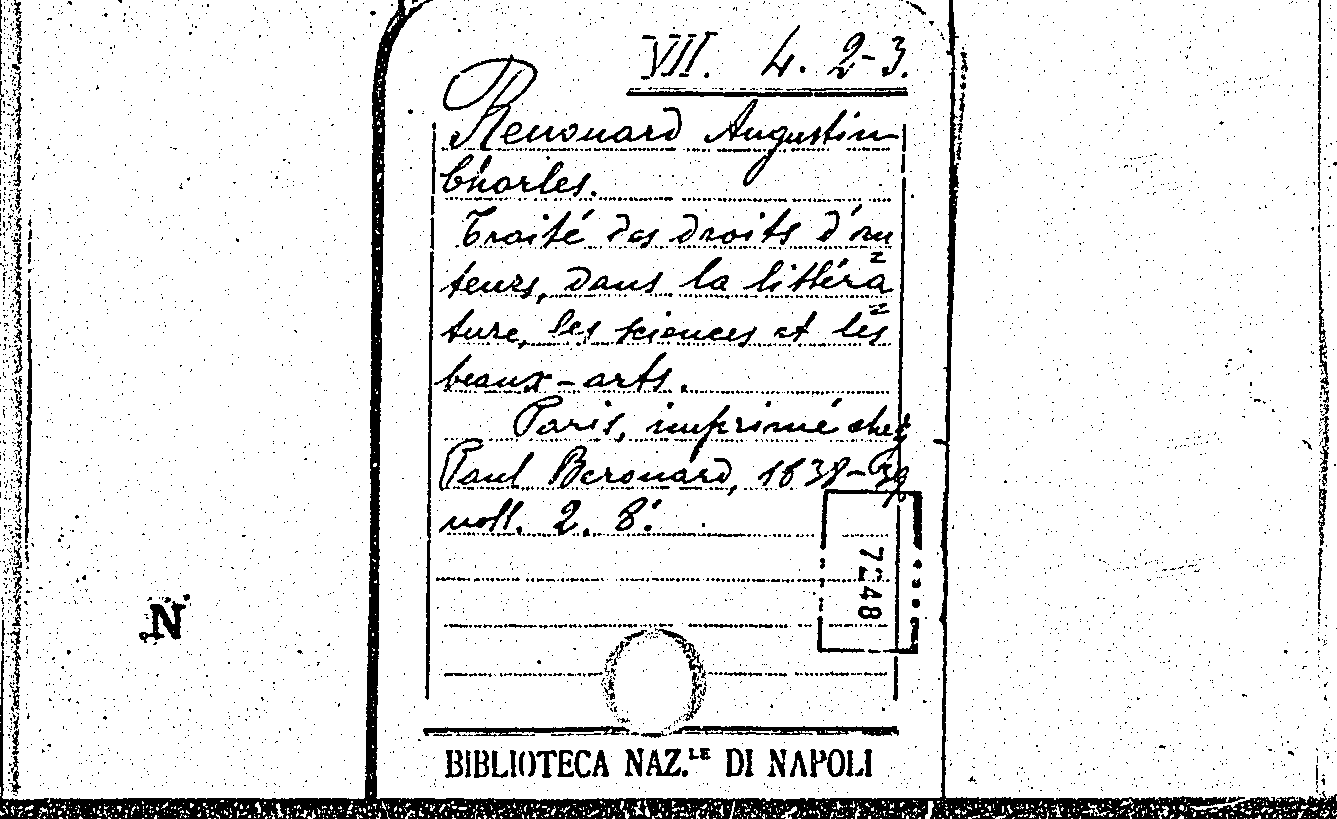 VII. 4. 2-3.
Renouard Augustin
Charles.
Traité des droits d'au
teurs, dans la littéra=
ture, les sciences et les=
beaux-arts.
Paris, imprimé chez
Paul Renouard, 1838-39
voll. 2. 8.°
7248
N
BIBLIOTECA NAZ.LE DI NAPOLI